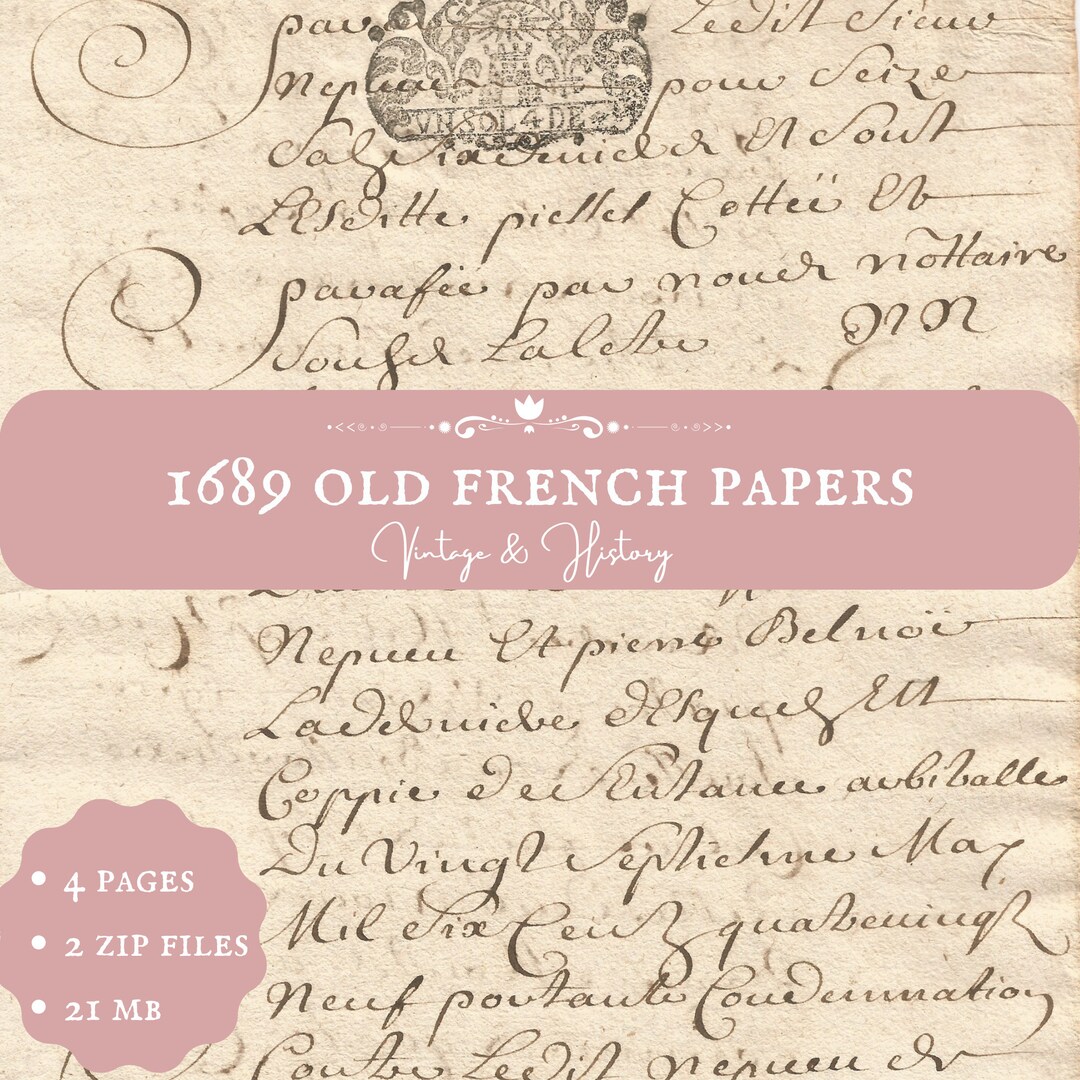 par Ledit Sieur
Nepueu pour Seize
VN SOL 4 DE
Solz Six deniers Et Sont
LEsditte piesses Cottéé Et
parafée par nous nottaire
Soubz La lettre NN
1689 OLD FRENCH PAPERS
Vintage & History
Nepueu Et pierre Belnoë
La derniere dEsquelz Est
Coppie de Sentance arbitralle
Du Vingt Septiesme May
Mil Six Centz quatrevingtz
Neuf portante Condemnation
Contre Ledit nepueu de
• 4 PAGES
• 2 ZIP FILES
• 21 MB